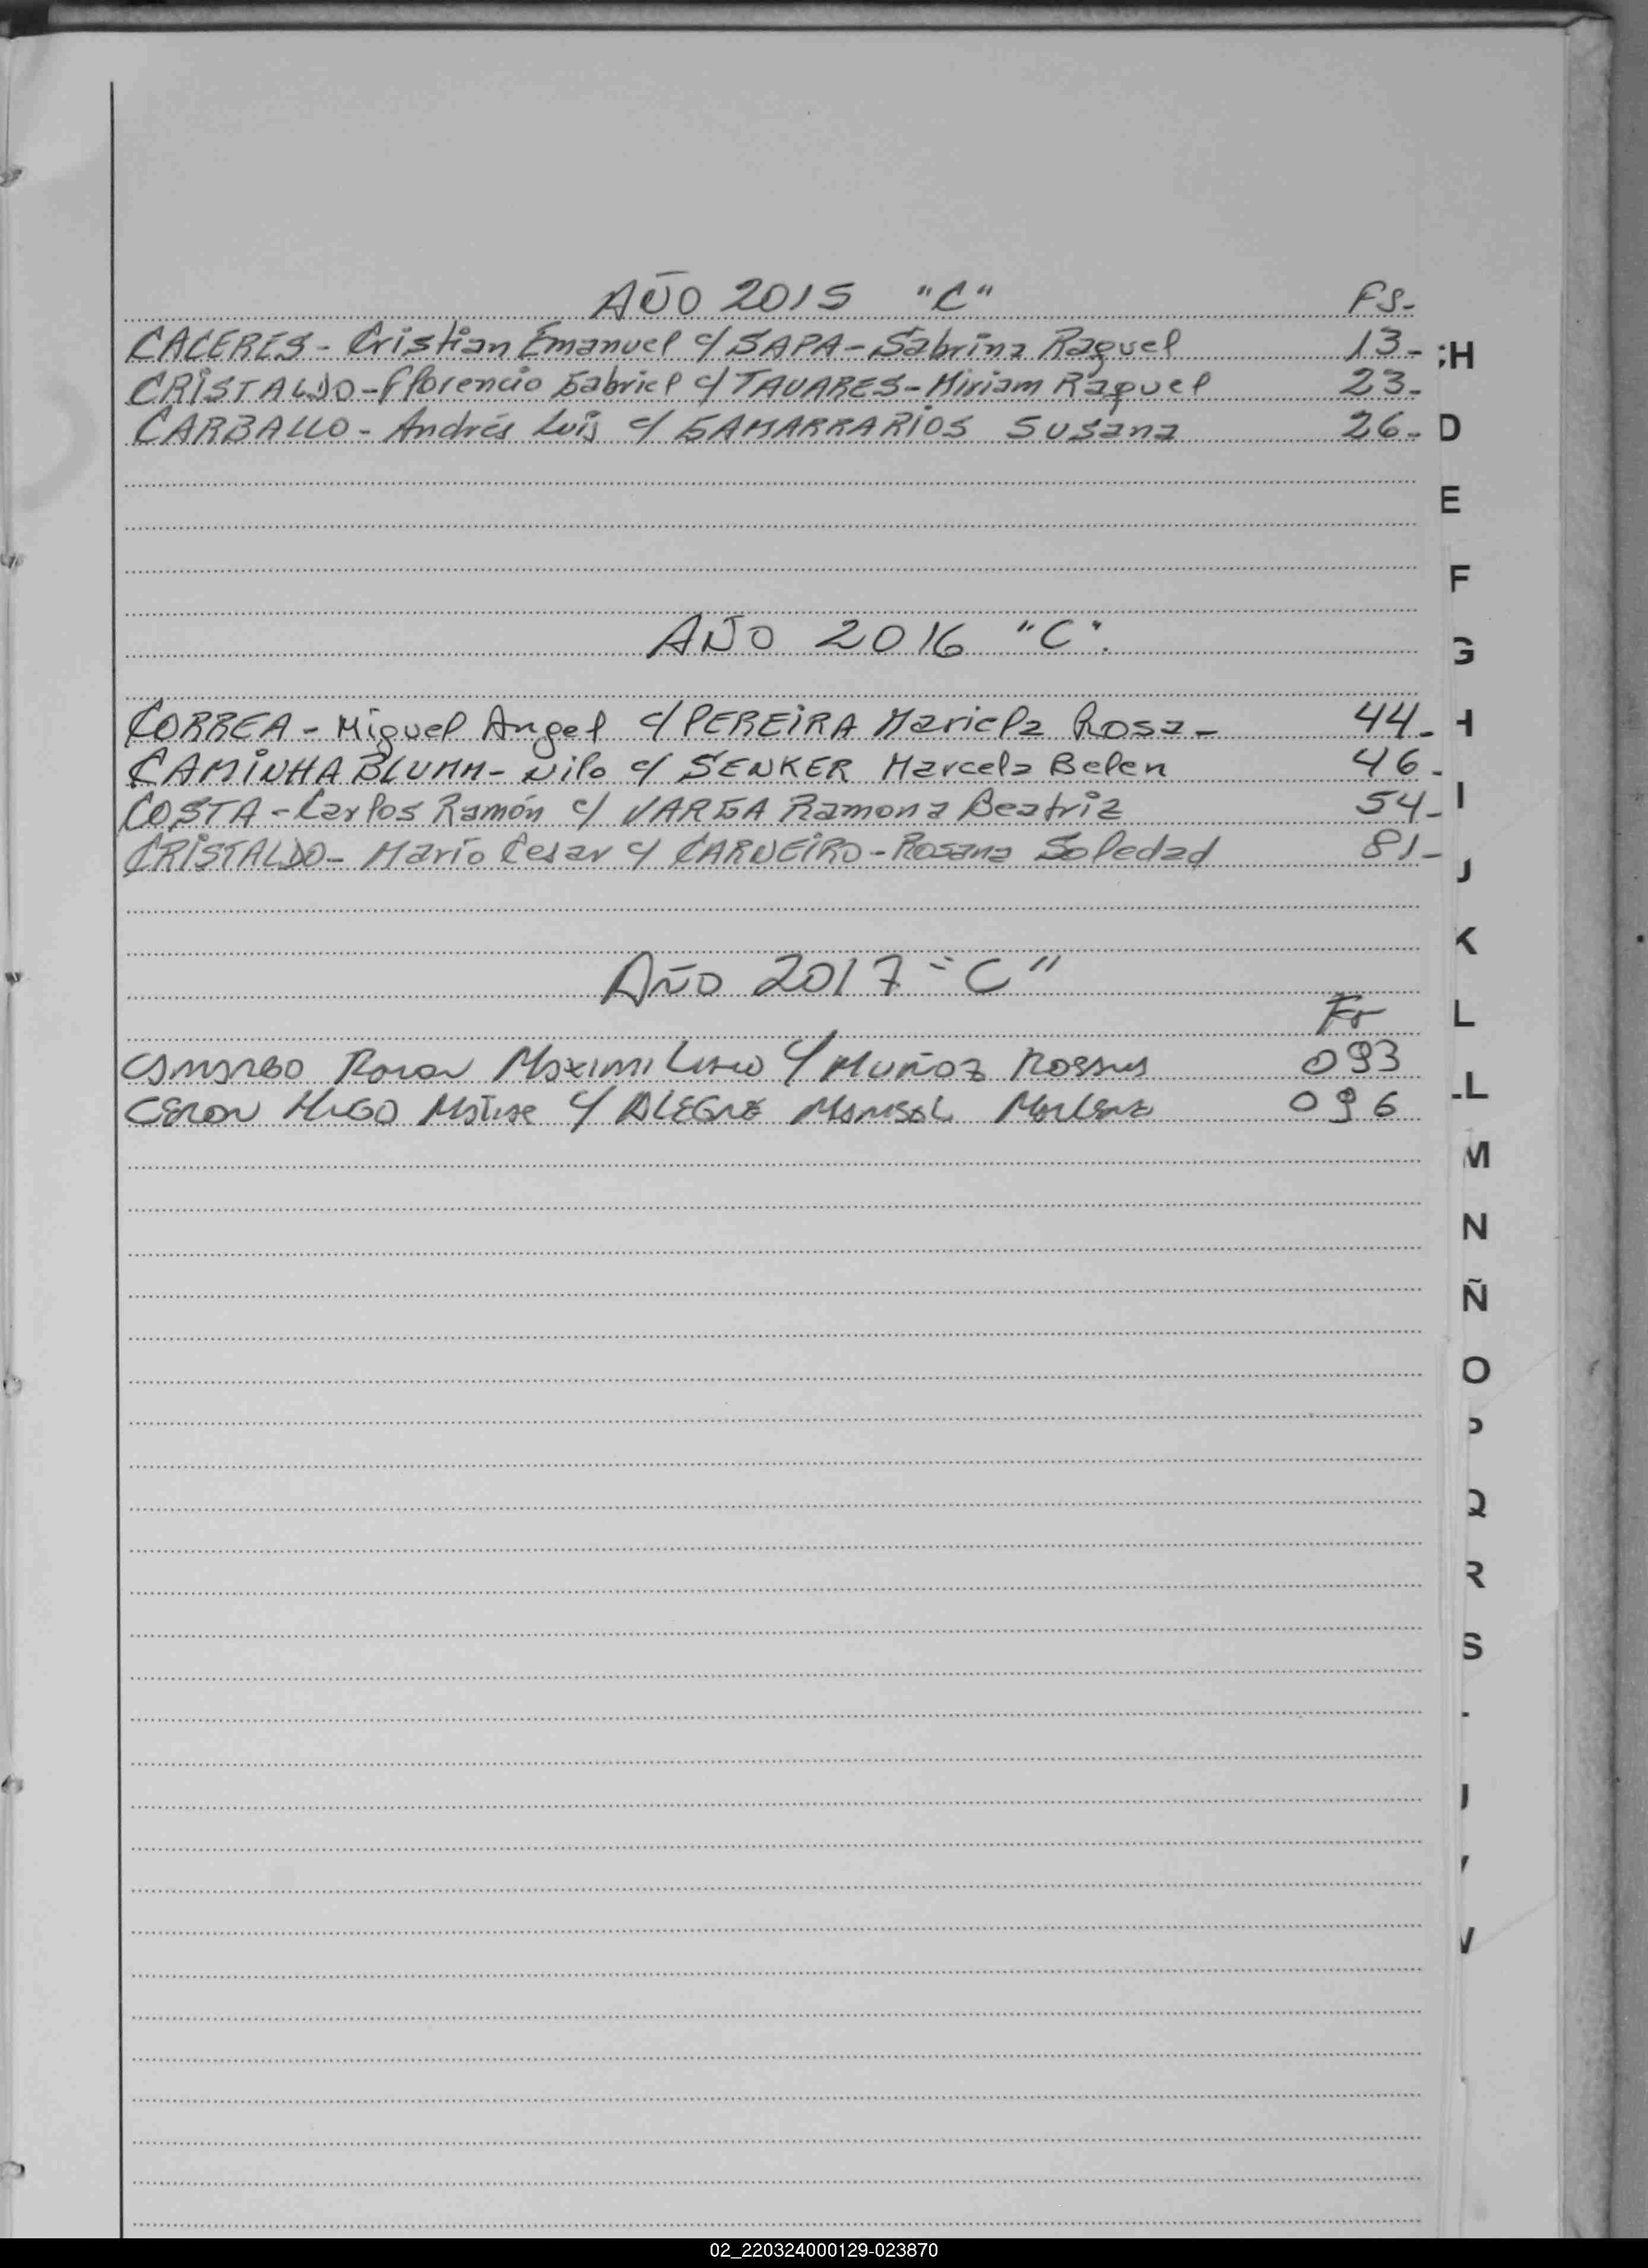 AÑO 2015 "C" FS-
CACERES - Cristian Emanuel c/ SAPA - Sabrina Raquel 13-
CRISTALDO - Florencio Gabriel c/ TAVARES - Miriam Raquel 23-
CARBALLO - Andrés Luis c/ GAMARRA RIOS Susana 26-
AÑO 2016 "C".
CORREA - Miguel Angel c/ PEREIRA Mariela Rosa - 44-
CAMINHA BLUMM - Nilo c/ SENKER Marcela Belen 46-
COSTA - Carlos Ramón c/ VARGA Ramona Beatriz 54-
CRISTALDO - Mario Cesar c/ CARNEIRO - Rosana Soledad 81-
AÑO 2017 "C"
CAMARGO Maximiliano c/ MUÑOZ 093
CERON HUGO c/ ALEGRE MARISOL 096
H
D
E
F
G
H
I
J
K
L
LL
M
N
Ñ
O
P
Q
R
S
02_220324000129-023870